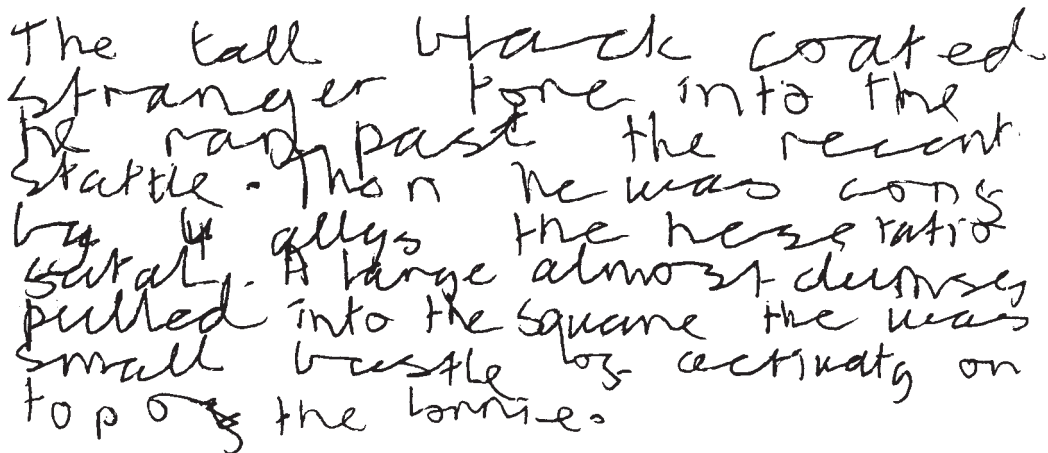 The tall black coated
stranger tore into the
he ran past the recent
stattle. Then he was cong
by 4 allys the heseratio
sataly. A large almost
pulled into the square the was
small bustle of activaty on
top of the lorrie.